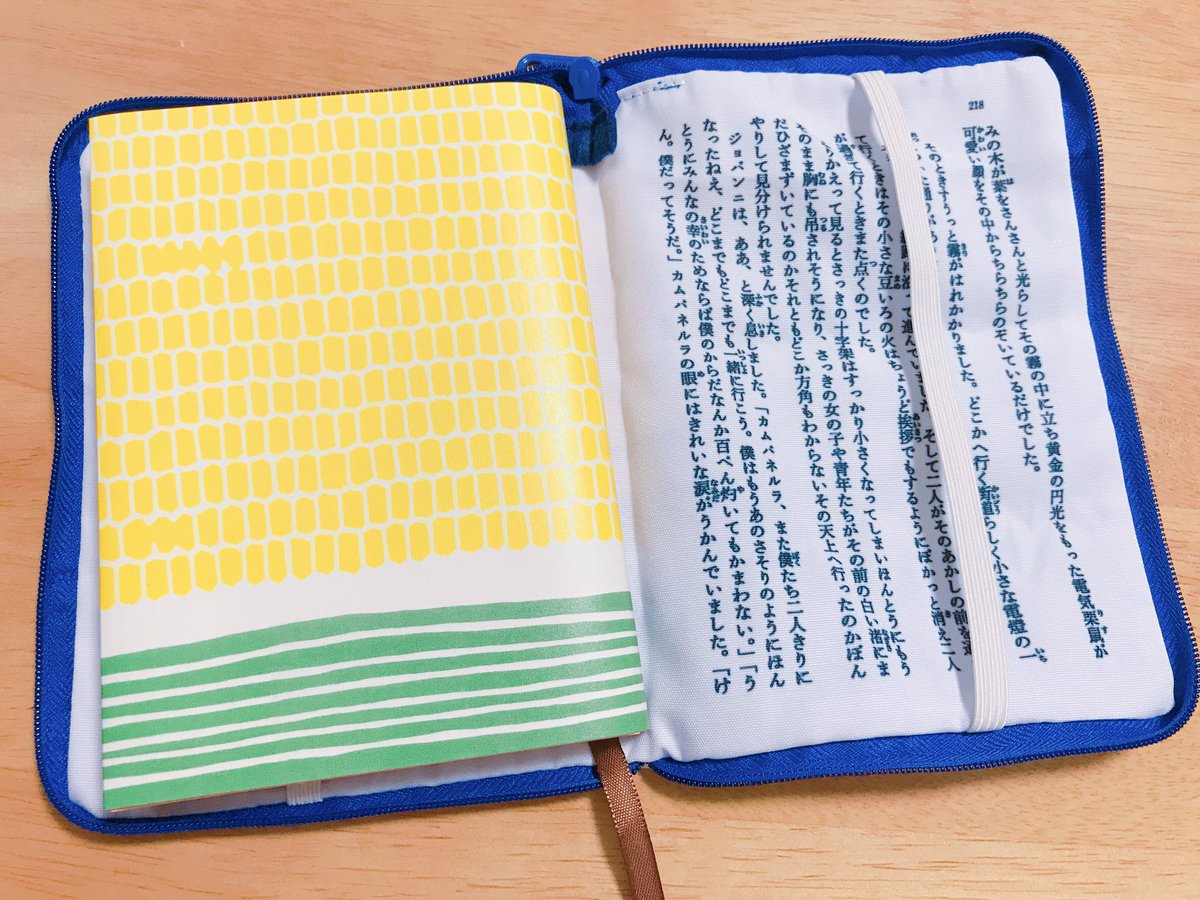 218
みの木が葉をさんさんと光らしてその霧の中に立ち黄金の円光をもった電気栗鼠が
可愛い顔をその中からちらちらのぞいているだけでした。
そのときすうっと霧がはれかかりました。どこかへ行く街道らしく小さな電燈の一
通りがあ 線路に沿って進んでいました。そして二人がそのあかしの前を通
て行くときはその小さな豆いろの火はちょうど挨拶でもするようにぽかっと消え二人
が過ぎて行くときまた点くのでした。
りかえって見るとさっきの十字架はすっかり小さくなってしまいほんとうにもう
そのまま胸にも吊されそうになり、さっきの女の子や青年たちがその前の白い渚にま
だひざまずいているのかそれともどこか方角もわからないその天上へ行ったのかぼん
やりして見分けられませんでした。
ジョバンニは、ああ、と深く息しました。「カムパネルラ、また僕たち二人きりに
なったねえ、どこまでもどこまでも一緒に行こう。僕はもうあのさそりのようにほん
とうにみんなの幸のためならば僕のからだなんか百ぺん灼いてもかまわない。」「う
ん。僕だってそうだ。」カムパネルラの眼にはきれいな涙がうかんでいました。「け